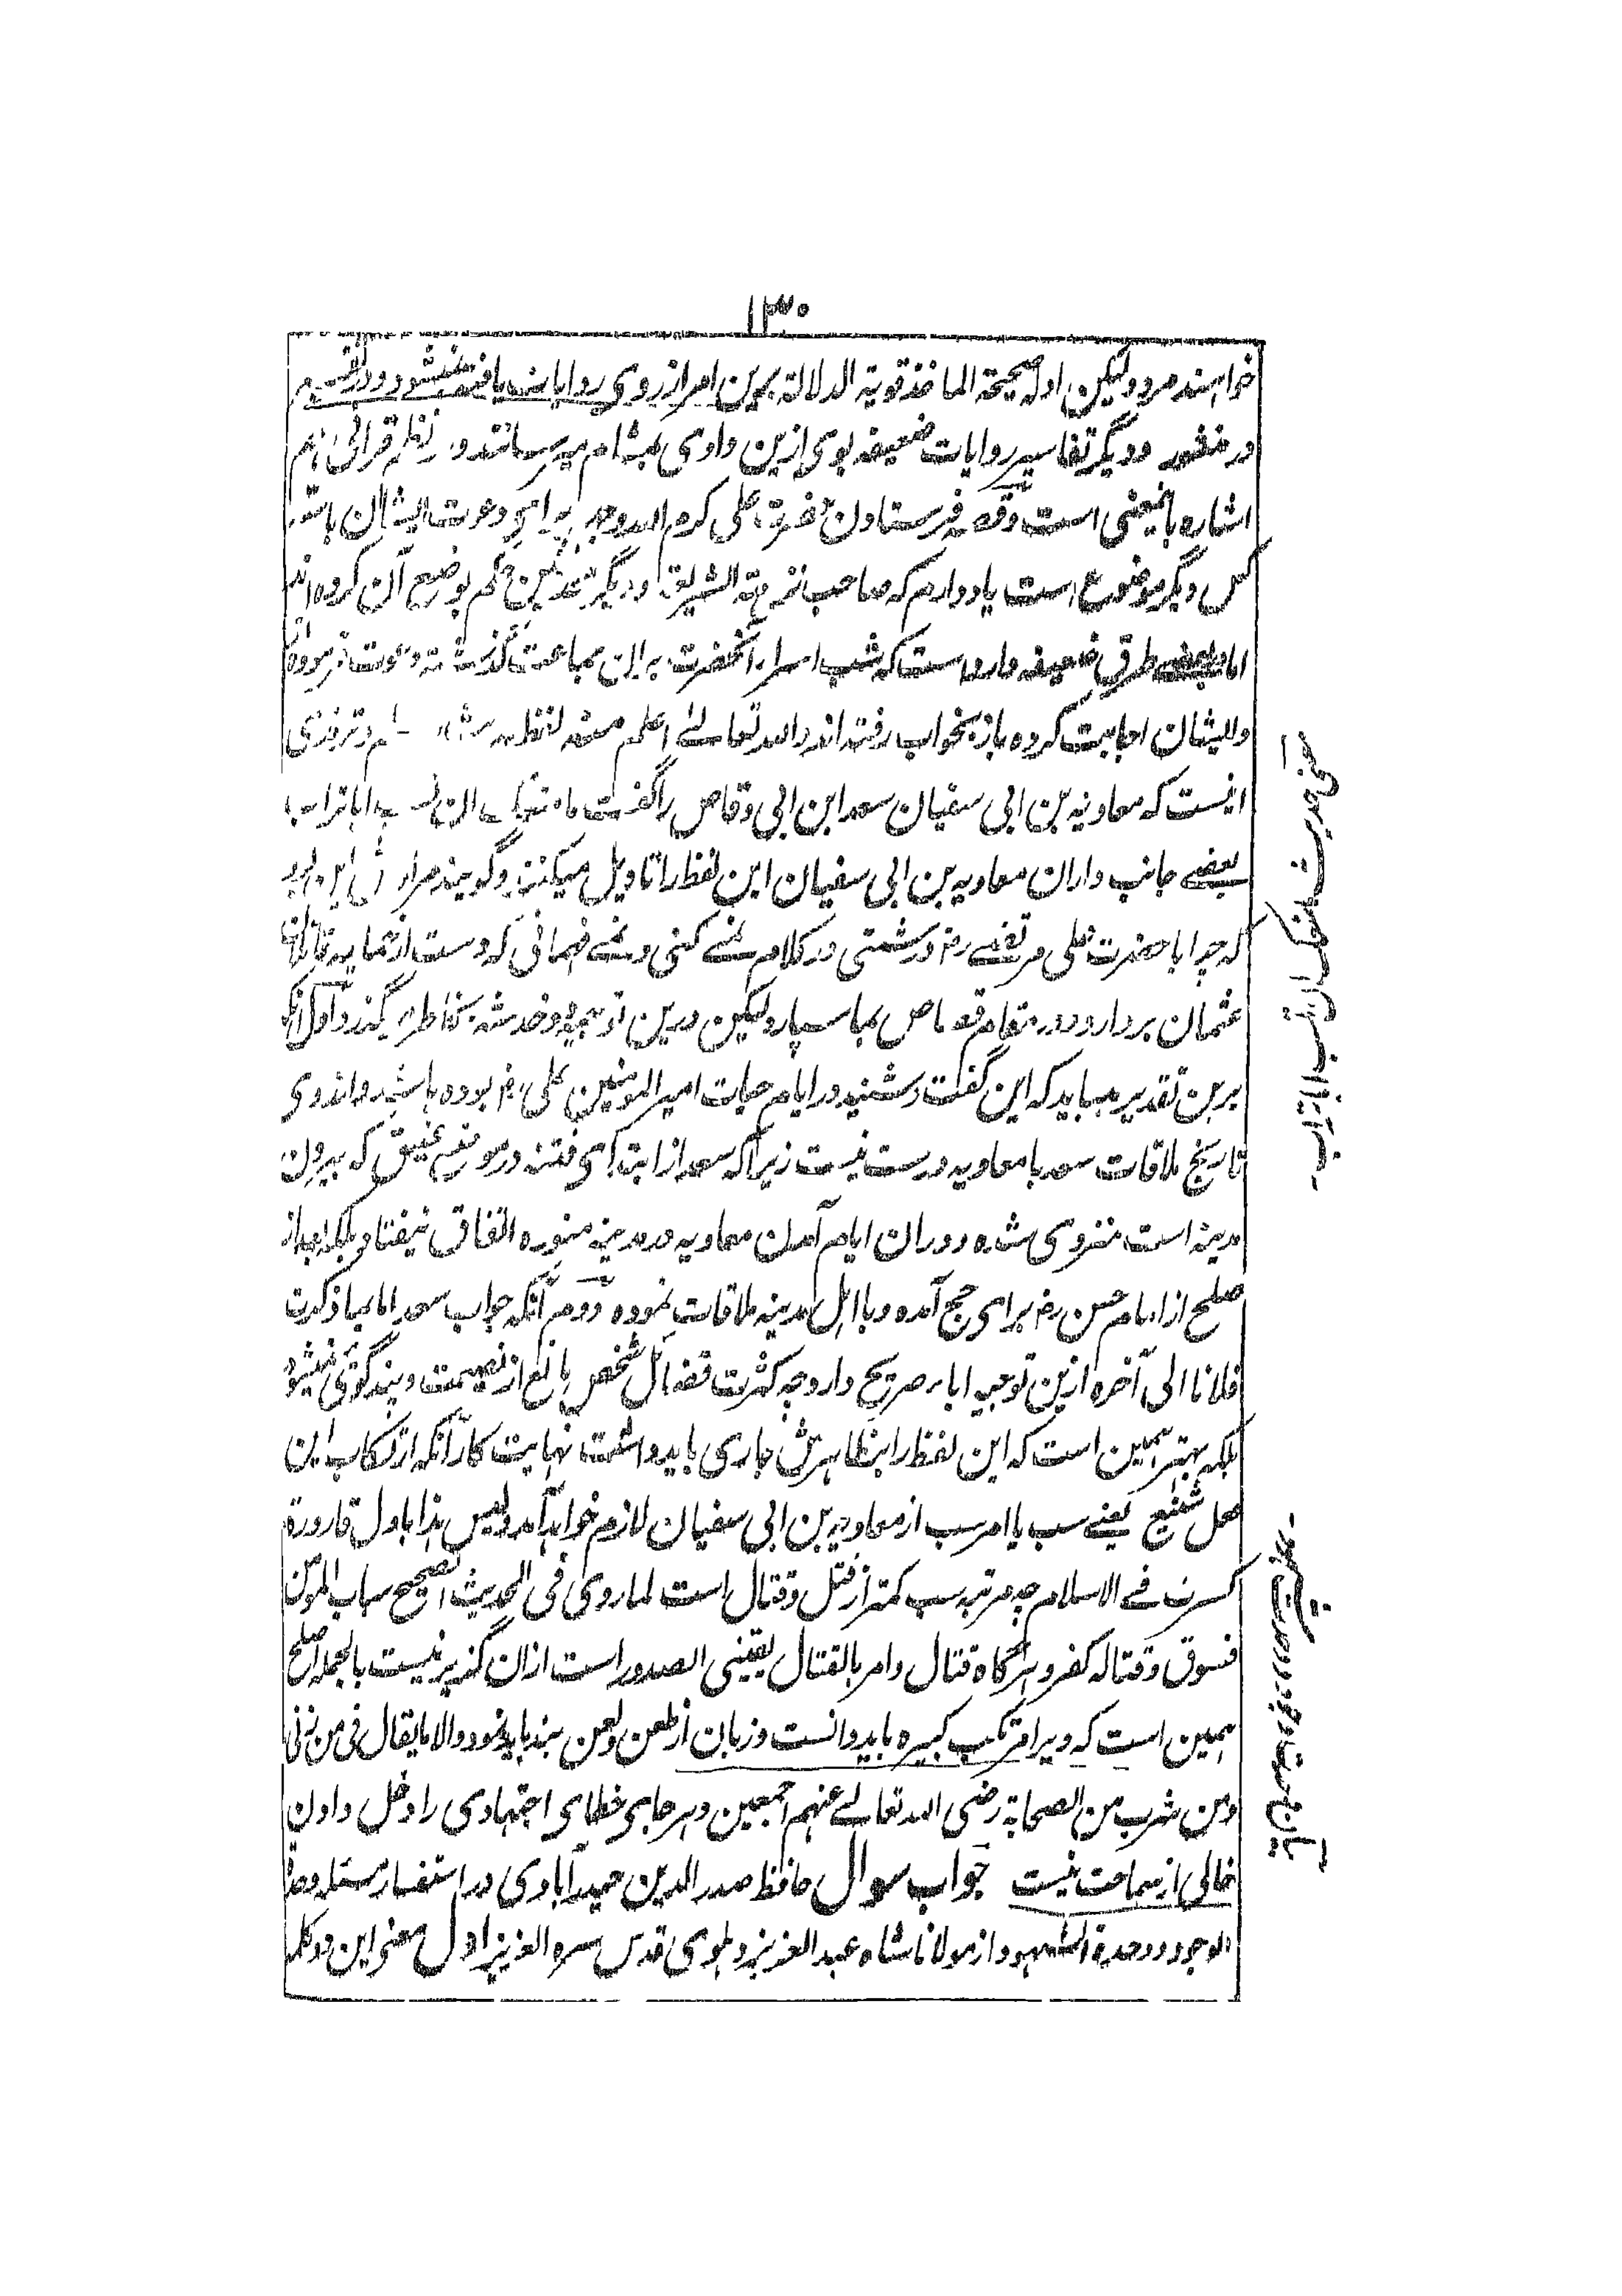 ۱۳۰
خواہند مرد ولیکن ادلہ صحیحۃ الماخذ قویۃ الدلالۃ برین امر از روی روایات یافتہ نمیشود و در
در منثور و دیگر تفاسیر روایات ضعیفہ بوی ازین وادی بمشام میرسانند و نظم قرانی ہم
اشارہ باینمعنی است و قصہ فرستادن حضرت علی کرم اللہ وجہہ برای دعوت ایشان باتفاق
دیگر موضوع است یاد دارم کہ صاحب تنزیہ الشریعۃ و دیگر محدثین حکم بوضع آن کردہ اند
اما در بعضے طرق ضعیفہ وارد است کہ شب اسراء آنحضرت برین جماعت گذشتہ دعوت فرمودہ
وایشان اجابت کردہ باز بخواب رفتہ اند واللہ تعالے اعلم لفظ مسلم و ترمذی
اینست کہ معاویہ بن ابی سفیان سعد ابن ابی وقاص را گفت ما منعک ان تسب ابا تراب
بعضے جانب داران معاویہ بن ابی سفیان این لفظ را تاویل میکنند و گویند مراد این بود
کہ چرا با حضرت علی مرتضے رض درشتی در کلام نمے کنی و نمے فہمانی کہ دست از حمایہ قاتلان
عثمان بردارد و در مقام قصاص بما سپارد لیکن درین توجیہ دو خدشہ بخاطر میگذرد اول آنکہ
برین تقدیر میباید کہ این گفت و شنید در ایام حیات امیر المومنین علی رض بودہ باشد و از روی
تاریخ ملاقات سعد با معاویہ درست نیست زیرا کہ سعد از ابتدای فتنہ در موضع عقیق کہ بیرون
مدینہ است منزوی شدہ و دران ایام آمدن معاویہ در مدینہ منورہ اتفاق نیفتاد بلکہ بعد از
صلح از امام حسن رض برای حج آمدہ و با اہل مدینہ ملاقات نمودہ دوم آنکہ جواب سعد اما بما ذکرت
فلانا الی آخرہ ازین توجیہ اباء صریح دارد چہ کثرت فضائل شخص مانع از نصیحت و پند گوئی نمیشود
بلکہ بہتر ہمین است کہ این لفظ را بظاہرش جاری باید داشت نہایت کار آنکہ ارتکاب این
عمل شنیع یعنے سب یا امر سب از معاویہ بن ابی سفیان لازم خواہد آمد ولیس ہذا باول قارورۃ
کسرت فے الاسلام چہ مرتبہ سب کمتر از قتل و قتال است لما روی فی الحدیث الصحیح سباب المومن
فسوق و قتالہ کفر و ہرگاہ قتال و امر بالقتال یقینی الصدور است ازان گزیر نیست بالجملہ اصلح
ہمین است کہ ویرا مرتکب کبیرہ باید دانست و زبان از طعن و لعن بند باید نمود والا ما یقال فی من زنی
ومن شرب من الصحابۃ رضی اللہ تعالے عنہم اجمعین وہر جا ہی خطای اجتہادی را دخل دادن
خالی از سماحت نیست جواب سوال حافظ صدر الدین حیدرآبادی در استفسار مسئلہ وحدۃ
الوجود و وحدۃ الشہود از مولانا شاہ عبد العزیز دہلوی قدس سرہ العزیز اول معنی این دو کلمہ
معنی حدیث مامنعک ان تسب ابا تراب۔
بیان وحدت وجود و وحدت شہود۔